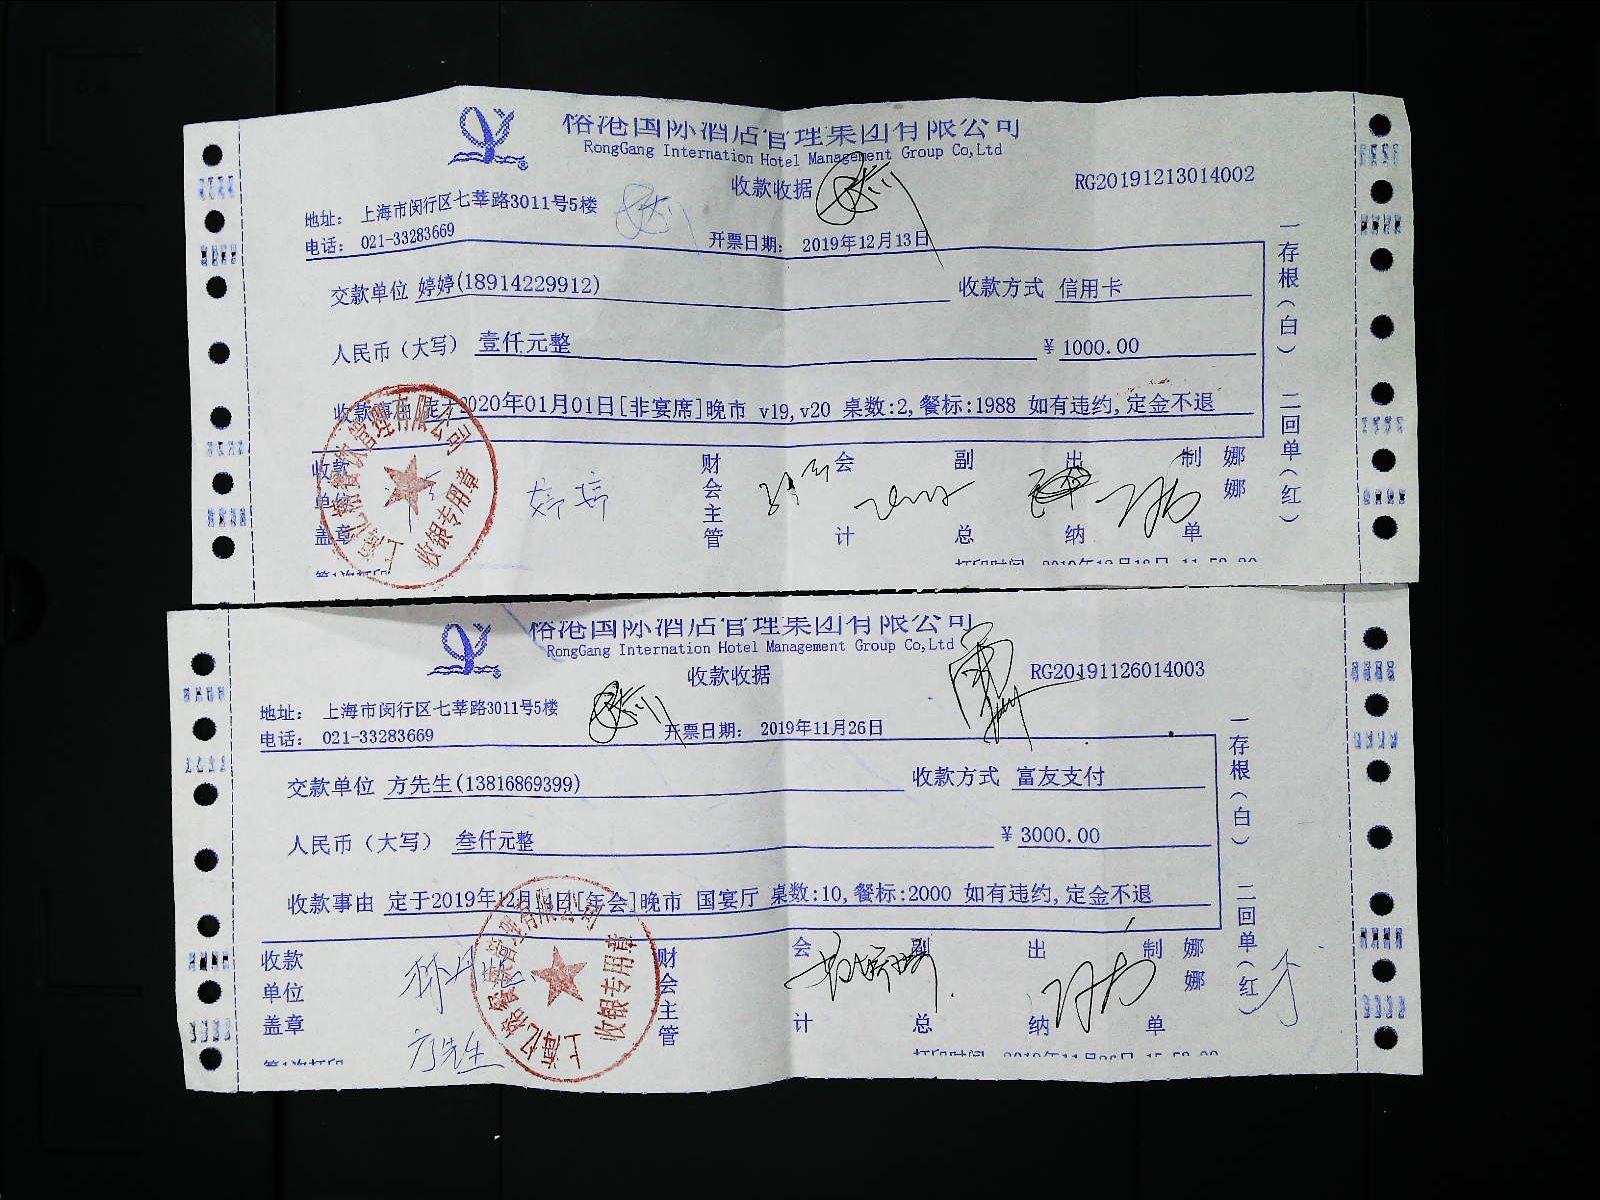 国际酒店管理集团有限公司
RongGang Internation Hotel Management Group Co,Ltd
收款收据
RG20191213014002
地址： 上海市闵行区七莘路3011号5楼
电话： 021-33283669
开票日期： 2019年12月13日
交款单位 婷婷(18914229912) 收款方式 信用卡
人民币（大写） 壹仟元整 ¥ 1000.00
收款事由 定于2020年01月01日[非宴席]晚市 v19,v20 桌数:2,餐标:1988 如有违约,定金不退
收款单位盖章 婷婷 财会主管 会计 副总 出纳 制单 娜娜
一存根（白） 二回单（红）
收银专用章
第1次打印
打印时间
国际酒店管理集团有限公司
RongGang Internation Hotel Management Group Co,Ltd
收款收据
RG20191126014003
地址： 上海市闵行区七莘路3011号5楼
电话： 021-33283669
开票日期： 2019年11月26日
交款单位 方先生(13816869399) 收款方式 富友支付
人民币（大写） 叁仟元整 ¥ 3000.00
收款事由 定于2019年12月14日[年会]晚市 国宴厅 桌数:10,餐标:2000 如有违约,定金不退
收款单位盖章 方先生 财会主管 会计 副总 出纳 制单 娜娜
一存根（白） 二回单（红）
收银专用章
第1次打印
打印时间